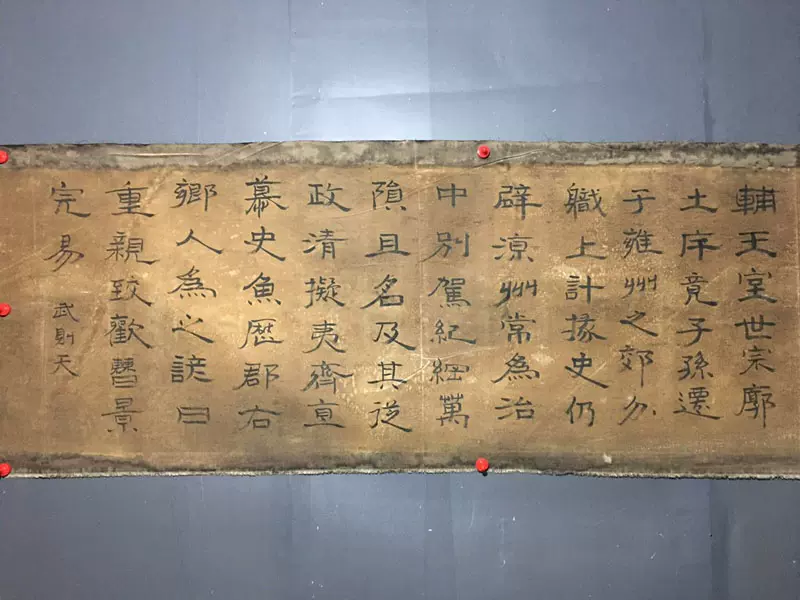 輔王室世宗廓
土序竟子孫遷
于雍州之郊分
職上計掾史仍
辟涼州常為治
中別駕紀綱萬
隕且名及其從
政清擬夷齊直
慕史魚歷郡右
鄉人為之諺曰
重親致歡曹景
完易 武則天